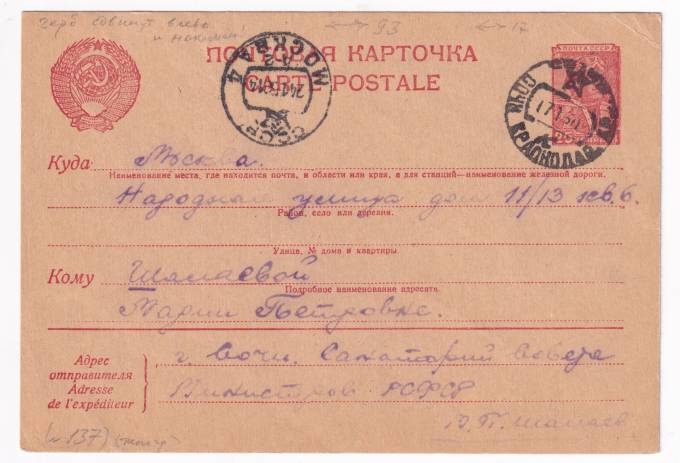 герб сдвинут влево
и наклонен
93
17
ПОЧТОВАЯ КАРТОЧКА
CARTE POSTALE
ПОЧТА СССР
МОСКВА 4
СССР
СОЧИ
КРАСНОДАР
17 1 50
25
Куда Москва.
Наименование места, где находится почта, и области или края, а для станций—наименование железной дороги.
Народная улица дом 11/13 кв. 6.
Район, село или деревня.
Улица, № дома и квартиры
Кому Шалаевой
Подробное наименование адресата.
Марии Петровне.
Адрес
отправителя
Adresse
de l'expéditeur
г. Сочи. Санаторий Совета
Министров РСФСР
Шалаев
(№137)